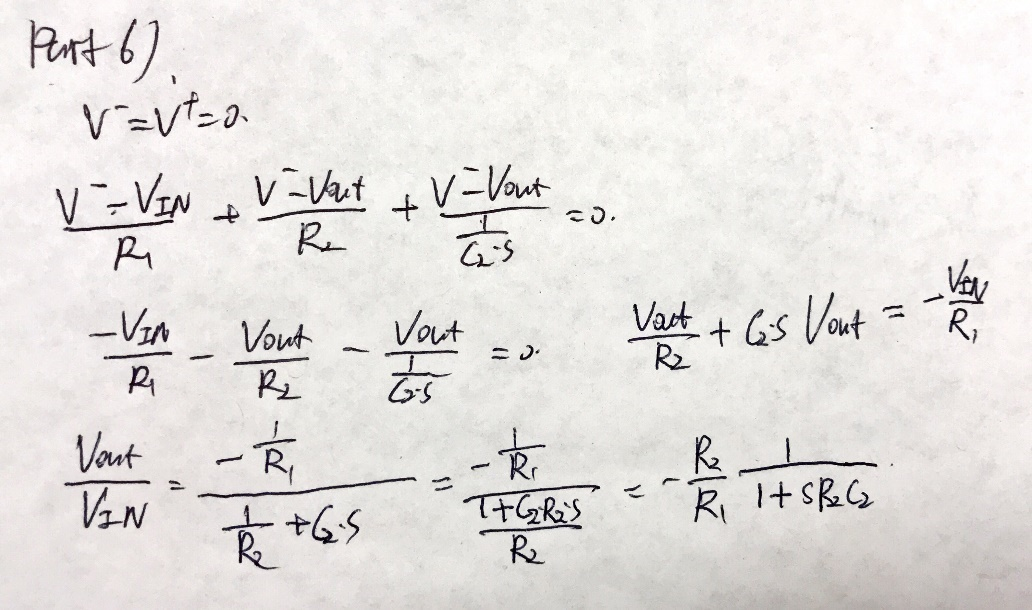 Part 6).
V⁻ = V⁺ = 0.
(V⁻ - VIN)/R1 + (V⁻ - Vout)/R2 + (V⁻ - Vout)/(1/(C2·S)) = 0.
-VIN/R1 - Vout/R2 - Vout/(1/(C2·S)) = 0.
Vout/R2 + C2·S Vout = -VIN/R1
Vout/VIN = (-1/R1)/(1/R2 + C2·S) = (-1/R1)/((1 + C2·R2·S)/R2) = -R2/R1 1/(1 + SR2C2)